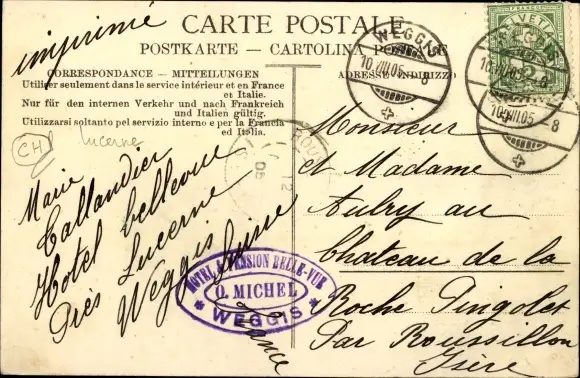 imprimé
CARTE POSTALE
POSTKARTE – CARTOLINA POSTALE
CORRESPONDANCE – MITTEILUNGEN
ADRESSE-INDIRIZZO
Utiliser seulement dans le service intérieur et en France
et Italie.
Nur für den internen Verkehr und nach Frankreich
und Italien gültig.
Utilizzarsi soltanto pel servizio interno e per la Francia
ed Italia.
CH
Lucerne
Marie
Callandier
Hotel bellevue
Près Lucerne
Weggis Suisse
HOTEL & PENSION BELLE-VUE
O. MICHEL
* WEGGIS *
HELVETIA
FRANCO
WEGGIS
10.VIII.05. 8
WEGGIS
10.VIII.05. 8
10.VIII.05. 8
Monsieur
et Madame
Aulry au
Chateau de la
Roche Pingolet
Par Roussillon
Isère
France